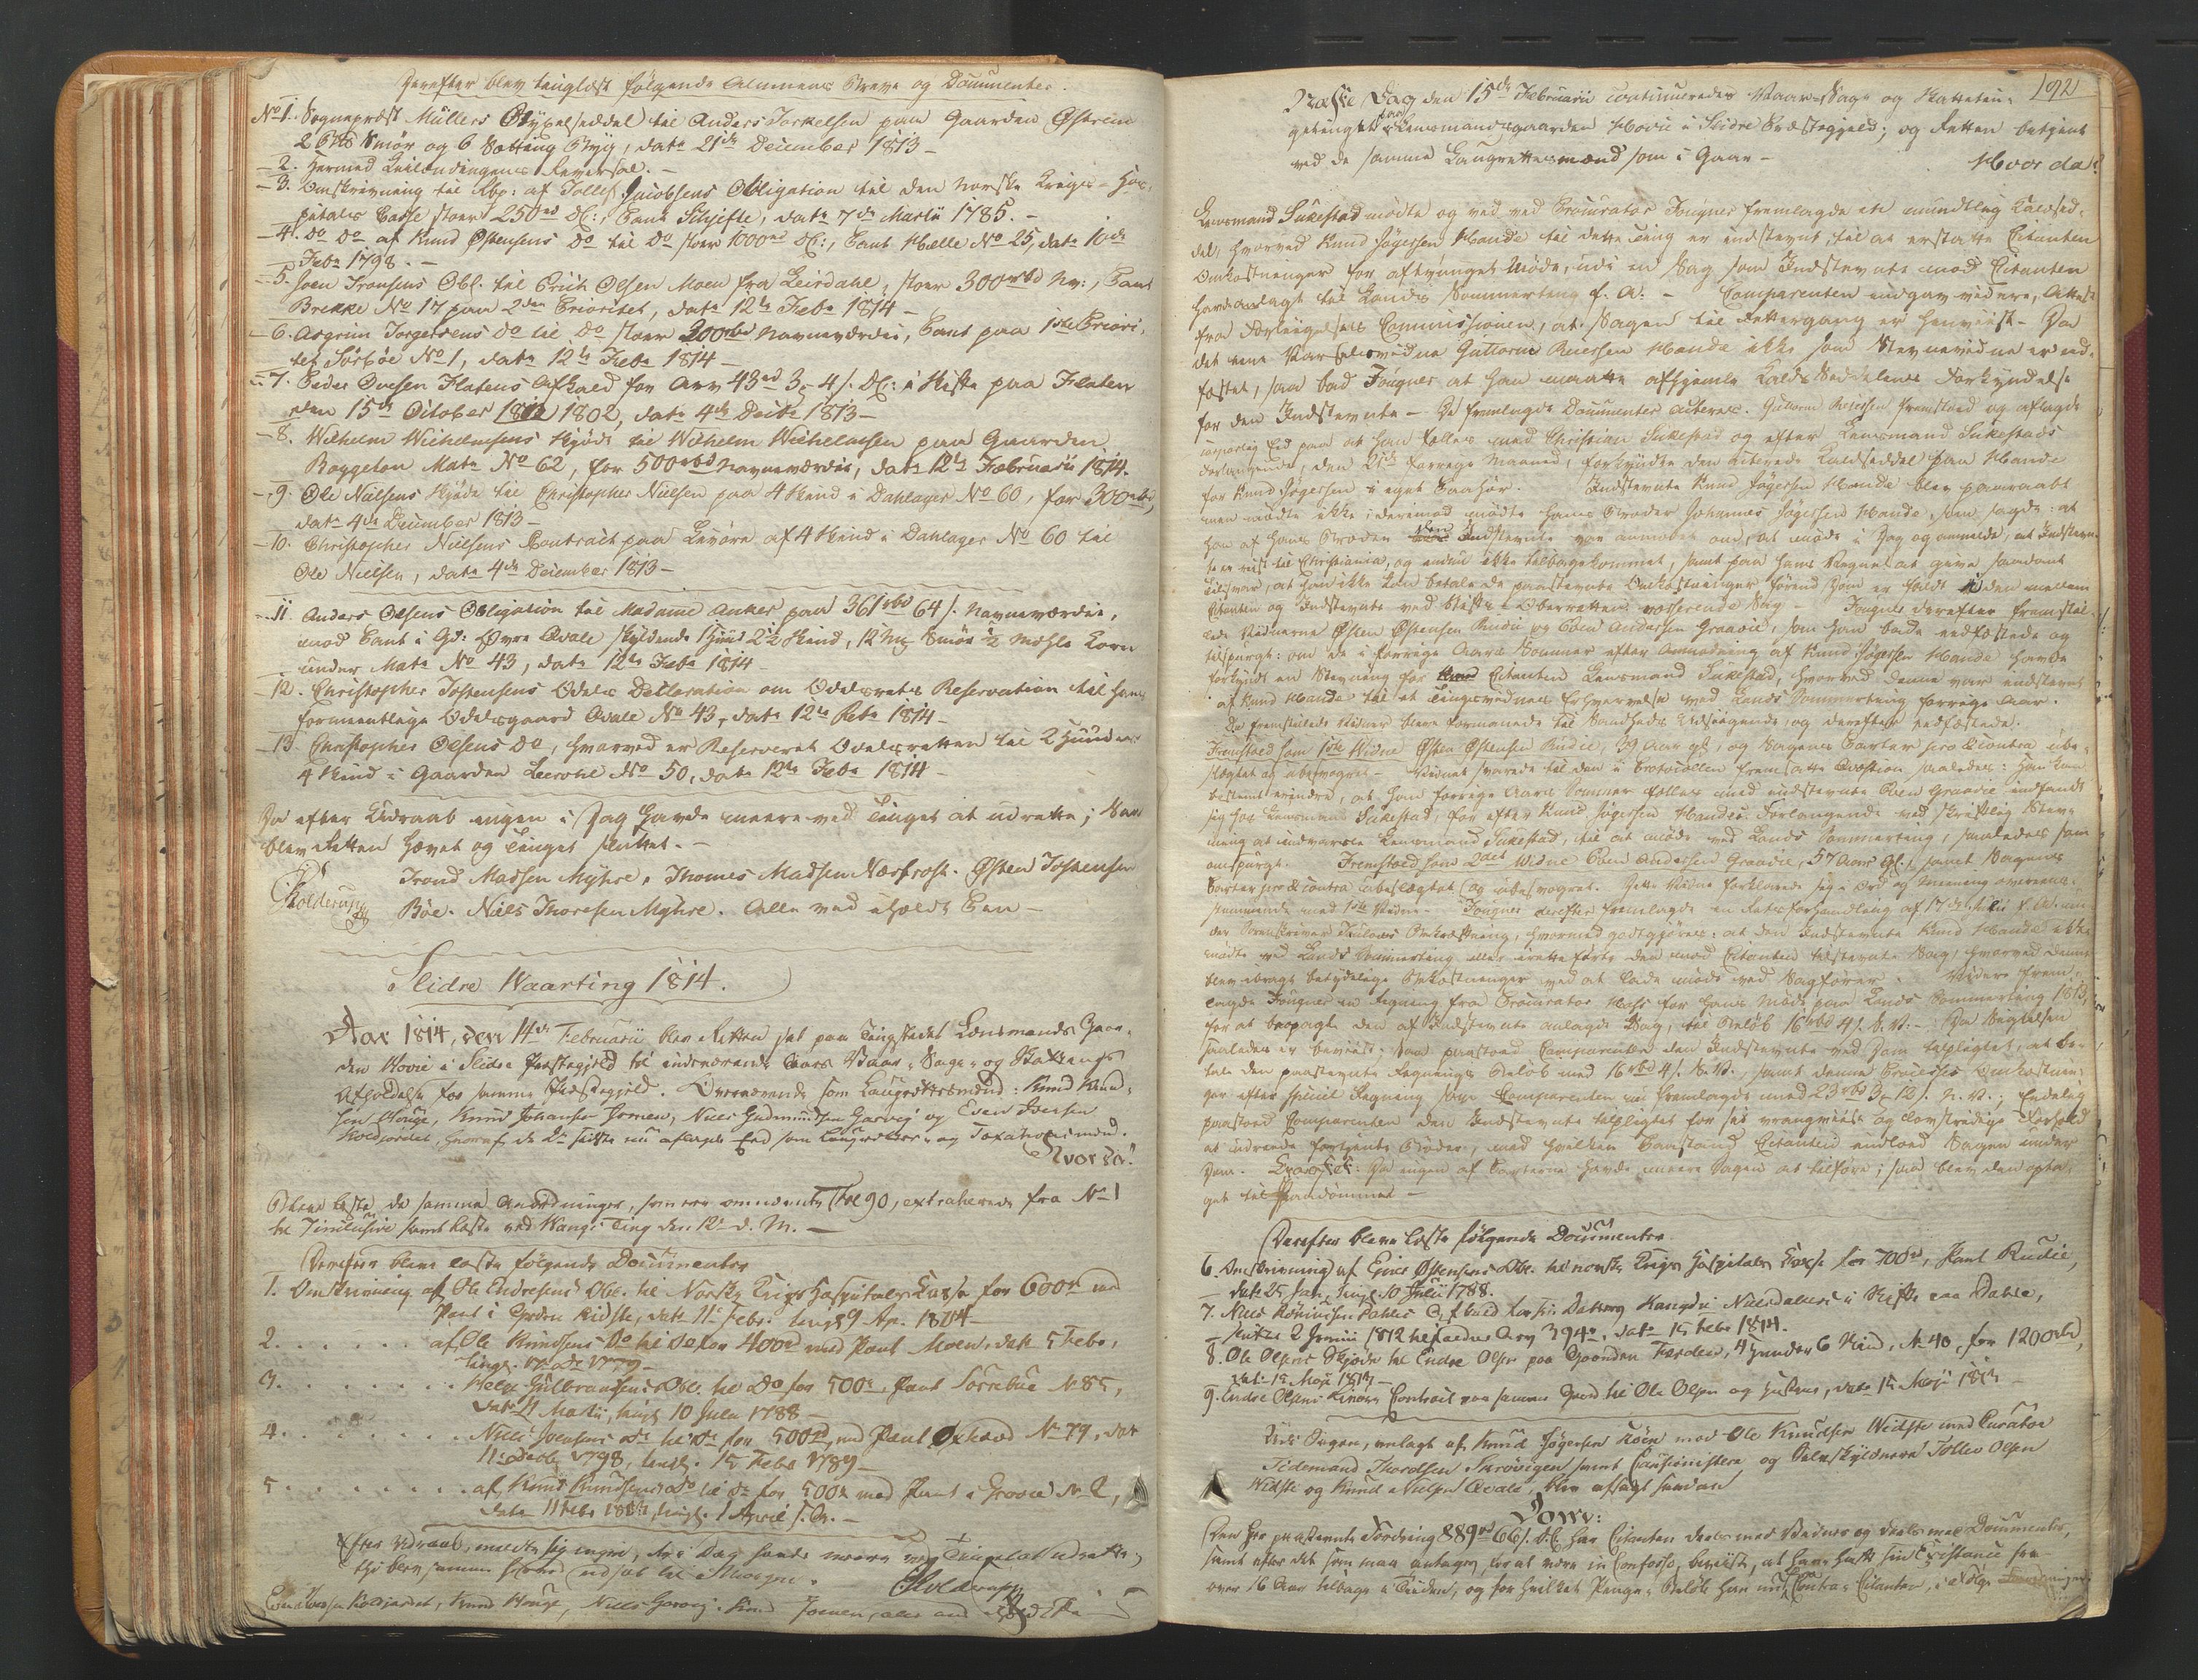 Derefter blev tinglæst følgende Almuens Breve og Documenter.
No 1. Sogneprest Müllers Bøyxelseddel til Anders Torkelsen paa Gaarden Østreim
2 Smør og 6 Sætting Byg, dat. 21de December 1813 -
- 2. Hermed Leilendingens Reversal. -
- 3. Omskrivning til Rbp: af Tollef Jacobsens Obligation til den Norske Krigs-Hos-
pitals Casse stoer 250rd DC:, Pant Schjefte, dat. 7de Martii 1785. -
- 4. do do af Knud Østensens do til do stoer 1000rd DC:, Pant Helle No 25, dat. 10de
Feb. 1798. -
- 5. Joen Tronsens Obl. til Erich Olsen Moen fra Leirdahl, stoer 300rbd Nv:, Pant
Brekke No 17 paa 2den Prioritet, dat. 12te Feb. 1814 -
- 6. Asgrim Torgersens do til do stoer 200rbd Navneværdie, Pant paa 1ste Priori-
tet Sørbøe No 1, dat. 12te Feb. 1814 -
- 7. Peder Ovesen Flatens Afkald for Arv 43rd 3. 4s. DC: i Skifte paa Flaten
den 15de October 1802, dat. 4de Decbr. 1813 -
- 8. Wilhelm Wilhelmsens Skjøde til Wilhelm Wilhelmsen paa Gaarden
Baggeton Mat. No 62, for 500rbd Navneværdie, dat. 12te Februarii 1814.
- 9. Ole Nielsens Skjøde til Christopher Nielsen paa 4 Skind i Dahlager No 60, for 300rbd,
dat. 4de December 1813 -
- 10. Christopher Nielsens Contract paa Livøre af 4 Skind i Dahlager No 60 til
Ole Nielsen, dat. 4de December 1813 -
- 11. Anders Olsens Obligation til Madame Anker paa 361rbd 64s. Navneværdie,
mod Pant i Gd: Øvre Qvale skyldende 1 Hud 2½ Skind, 12 Mg Smør ½ Mæhle Korn
under Mat. No 43, dat. 12te Feb. 1814 -
- 12. Christopher Jostensens Odels Declaration om Odelsrets Reservation til hans
formeentlige Odelsgaard Qvale No 43, dat. 12te Feb. 1814 -
- 13. Christopher Olsens do, hvorved er Reserveret Odelsretten til 2 Hunder
4 Skind i Gaarden Leerohl No 50, dat. 12te Feb. 1814 -
Da efter Udraab ingen i Dag havde meere ved Tinget at udrette; Saa
blev Retten hævet og Tinget sluttet. -
Trond Madsen Myhre, Thomes Madsen Nærfrost. Østen Jostensen
Holderup Bøe. Niels Thoresen Myhre. Alle med aholdt Pen -
Slidre Waarting 1814.
Aar 1814, den 14de Februarii blev Retten sat paa Tingstedet Lensmands Gaar-
den Hovie i Slidre Præstegjeld til indeværende Aars Vaar- Sage- og Skattetings
Afholdelse for samme Præstegjeld. Overværende som Laugrettesmænd: Knud Knud-
sen Houge, Knud Johansen Joemen, Niels Gudmundsen Garvig og Even Iversen
Koldjordet, hvoraf de 2de sidste nu aflagde Eed som Laugrettes- og Taxationsmænd.
Hvorda!
Bleve læste de samme Anordninger, som ere omnævnte Fol 90, extraherede fra No 1
til 7 inclusive samt læste ved Vangs Ting den 12te d. M. -
Derefter bleve læste følgende Documenter
1. Omskrivning af Ole Endresens Obl. til Norske Krigs Hospitals Kasse for 600rd med
Pant i Gaarden Ridste, dat. 11te Febr. tingl. 9 Ap. 1804 -
2. . . . . . . af Ole Knudsens do til do for 400rd med Pant Moen, dat. 5 Febr.,
tingl. 1779 -
3. . . . . . . Helge Gulbransens Obl. til do for 500rd, Pant Sørrebøe No 85,
dat. 11 Martii, tingl. 10 Julii 1788 -
4. . . . . . . Niels Joensens do til do for 500rd, med Pant Øxhovd No 79, dat.
11 Octobr. 1798, tingl. 15 Febr. 1789 -
5 . . . . . . . af Knud Knudsens do til do for 500rd med Pant i Grovie No 2,
dat. 11 Febr., tingl. 1 April s. A. -
Efter Udraab, meldte sig ingen, der i Dag havde meere ved Tinget at udrette;
thi blev samme udsat til i Morgen. Holderup
Even Iversen Koldjordet, Knud Houge, Niels Garvig. Knud Joemen, alle med
192
Næste Dag den 15de Februarii continueredes Vaar-Sage og Skatteting
getinget paa Lensmandsgaarden Hovie i Slidre Præstegjeld; og Retten betjent
ved de samme Laugrettesmænd som i Gaar -
Hvor da!
Lensmand Sukestad mødte og ved Procurator Fougner fremlagde en mundtlig Kaldsed-
del, hvorved Knud Jøgersen Hande til dette Ting er indstevnt, til at erstatte Citanten
Omkostninger for aftvunget Møde, udi en Sag som Indstevnte mod Citanten
havde anlagt til Lands Sommerting f. A. - Comparenten indgav videre, Attest
fra Forligelses Commissionen, at Sagen til Rettergang er henviist - Da
det ene Varselsvidne Guttorm Knudsen Hande ikke som Stevnevidne er ed-
fæstet, saa bad Fougner at han maatte afhjemle Kalds Seddelens Forkyndelse
for den Indstevnte - De fremlagde Documenter acteres. Guttorm fremstoed og aflagde
corporlig Eed paa at han fælles med Christian Sukestad og efter Lensmand Sukestads
Forlangende, den 21de forrige Maaned, forkyndte den acterede Kaldseddel paa Hande
for Knud Jøgersen i eget Paahør. Indstevnte Knud Jøgersen Hande blev paaraabt
men mødte ikke; derimod mødte hans Broder Johannes Jøgersen Hande, som sagde: at
han af hans Broder den Indstevnte var anmodet om, at møde i Dag og anmelde, at Indstevn-
te er reist til Christiania, og endnu ikke tilbagekommet, samt paa hans Vegne at give saadant
Tilsvar, at han ikke kan betale de paastevnte Omkostninger førend Dom er faldt i den mellem
Citanten og Indstevnte ved Stifts-Overretten værserende Sag - Fougner derefter fremstil-
lede Vidnerne Østen Østensen Rudie og Poen Andersen Graavie, som han bad edfæstede og
tilspurgt: om de i forrige Aars Sommer efter Anmodning af Knud Jøgersen Hande havde
forkyndt en Stevning for Citanten Lensmand Sukestad, hvorved denne var indstevnt
af Knud Hande til et Tingsvidnes Erhvervelse ved Lands Sommerting forrige Aar.
De fremstillede Vidner bleve formanede til Sandheds Udsigende, og derefter edfæstede.
Fremstoed som 1ste Vidne Østen Østensen Rudie, 39 Aar gl., og Sagens Parter pro & contra ube-
slægtet og ubesvogret - Vidnet svarede til den i Protocollen fremsatte Qvæstion saaledes: Han kan
bestemt erindre, at han forrige Aars Sommer fælles med medstevnte Poen Graavie indfandt
sig hos Lensmand Sukestad, for efter Knud Jøgersen Handes Forlangende ved skriftlig Stev-
ning at indvarsle Lensmand Sukestad, til at møde ved Lands Sommerting, saaledes som
omspurgt. Fremstoed som 2det Vidne Poen Andersen Graavie, 57 Aar gl., samt Sagens
Parter pro & contra ubeslægtet og ubesvogret. Dette Vidne forklarede sig i Ord og Meening overeens-
stemmende med 1ste Vidne. - Fougner derefter fremlagde en Retsforhandling af 17de Julii f. A. un-
der Sorenskriver Bekræftning, hvormed godtgjøres: at den Indstevnte Knud Hande ikke
mødte ved Lands Sommerting eller iretteførte den mod Citanten tilstevnte Sag, hvorved denne
blev paadraget betydelige Omkostninger ved at lade møde ved Sagfører. Videre frem-
lagde Fougner en Regning fra Procurator Hass for hans Møde paa Lands Sommerting 1813,
for at beopagte den af Indstevnte anlagte Sag, til Beløb 16rbd 4s. N.V. - Da Søgelsen
saaledes er beviist; saa paastoed Comparenten den Indstevnte ved Dom tilpligtet, at be-
tale den paastevnte Regnings Beløb med 16rbd 4s. N.V., samt denne Processes Omkostnin-
ger efter speciel Regning som Comparenten nu fremlagde med 23rbd 3. 12s. N.V.; endelig
paastoed Comparenten den Indstevnte tilpligtet for sit vrangviise og lovstridige Forhold
at udrede fortjente Bøder, med hvilken Paastand Citanten indlod Sagen under
Dom. Eragtet: Da ingen af Parterne havde meere Sagen at tilføre; saa blev den opta-
get til Paadømmel -
Derefter bleve læste følgende Documenter
6. Omskrivning af Ejner Østensens Obl. til norske Krigs Hospitals Kasse for 700rd, Pant Rudie,
dat. 25 Jan., tingl. 10 Julii 1788.
7. Niels Afkald for Nielsdatters i Skifte paa Dahle,
sluttet 2 Junii 1812 tilfaldne Arv 394rd, dat. 15 Febr 1814.
8. Ole Olsens Skjøde til Endre Olsen paa Gaarden Færden, 4 Hunder 6 Skind, No 40, for 1200rbd,
dat. 15 Maji 1813 -
9. Endre Olsens Livøres Contract paa samme Gaard til Ole Olsen og Hustrue, dat. 15 Maji 1813 -
Udi Sagen, anlagt af Knud Jøgersen Røen mod Ole Knudsen Widste med Curator
Tidemand Thordsen Skrøvigen samt Cautionisterne og Selvskyldnere Tollev Olsen
Widste og Knud Nielsen Qvale, blev afsagt saadan
Dom:
Den her paastevnte Fordring 889rd 66s. D.C. har Citanten deels med Vidner og deels med Documenter,
samt efter det som maa antages for at være in Confesso, beviist, at have havt sin Existence fra
over 16 Aar tilbage i Tiden, og for hvilket Penge-Beløb han nu Contra-Citanten, i Følge